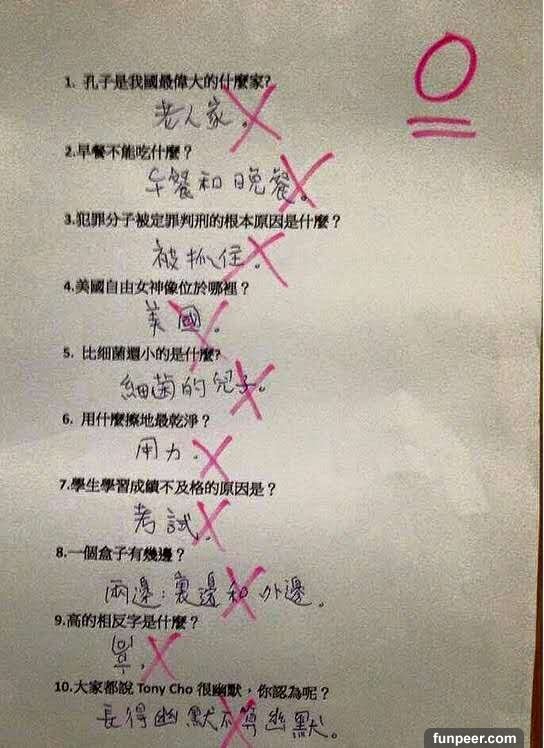 0
1. 孔子是我國最偉大的什麼家?
老人家。
2.早餐不能吃什麼？
午餐和晚餐。
3.犯罪分子被定罪判刑的根本原因是什麼？
被抓住。
4.美國自由女神像位於哪裡？
美國。
5. 比細菌還小的是什麼?
細菌的兒子。
6. 用什麼擦地最乾淨？
用力。
7.學生學習成績不及格的原因是？
考試。
8.一個盒子有幾邊？
兩邊：裏邊和外邊。
9.高的相反字是什麼？
10.大家都說 Tony Cho 很幽默，你認為呢？
長得幽默不算幽默。
funpeer.com